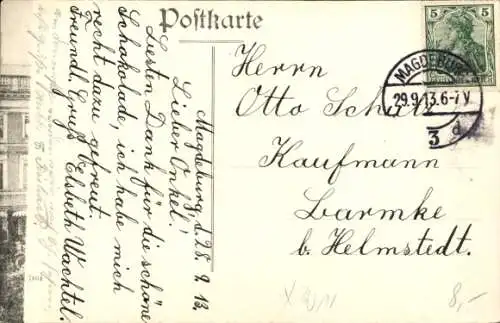 Postkarte
Magdeburg, d. 28. 9. 13.
Lieber Onkel!
Besten Dank für die schöne
Schokolade, ich habe mich
recht dazu gefreut.
Freundl. Gruß Elsbeth Wachtel.
Herrn
Otto Schütz
Kaufmann
Barmke
b. Helmstedt.
5 5
MAGDEBURG
29.9.13.6-7V.
3 d
8,-